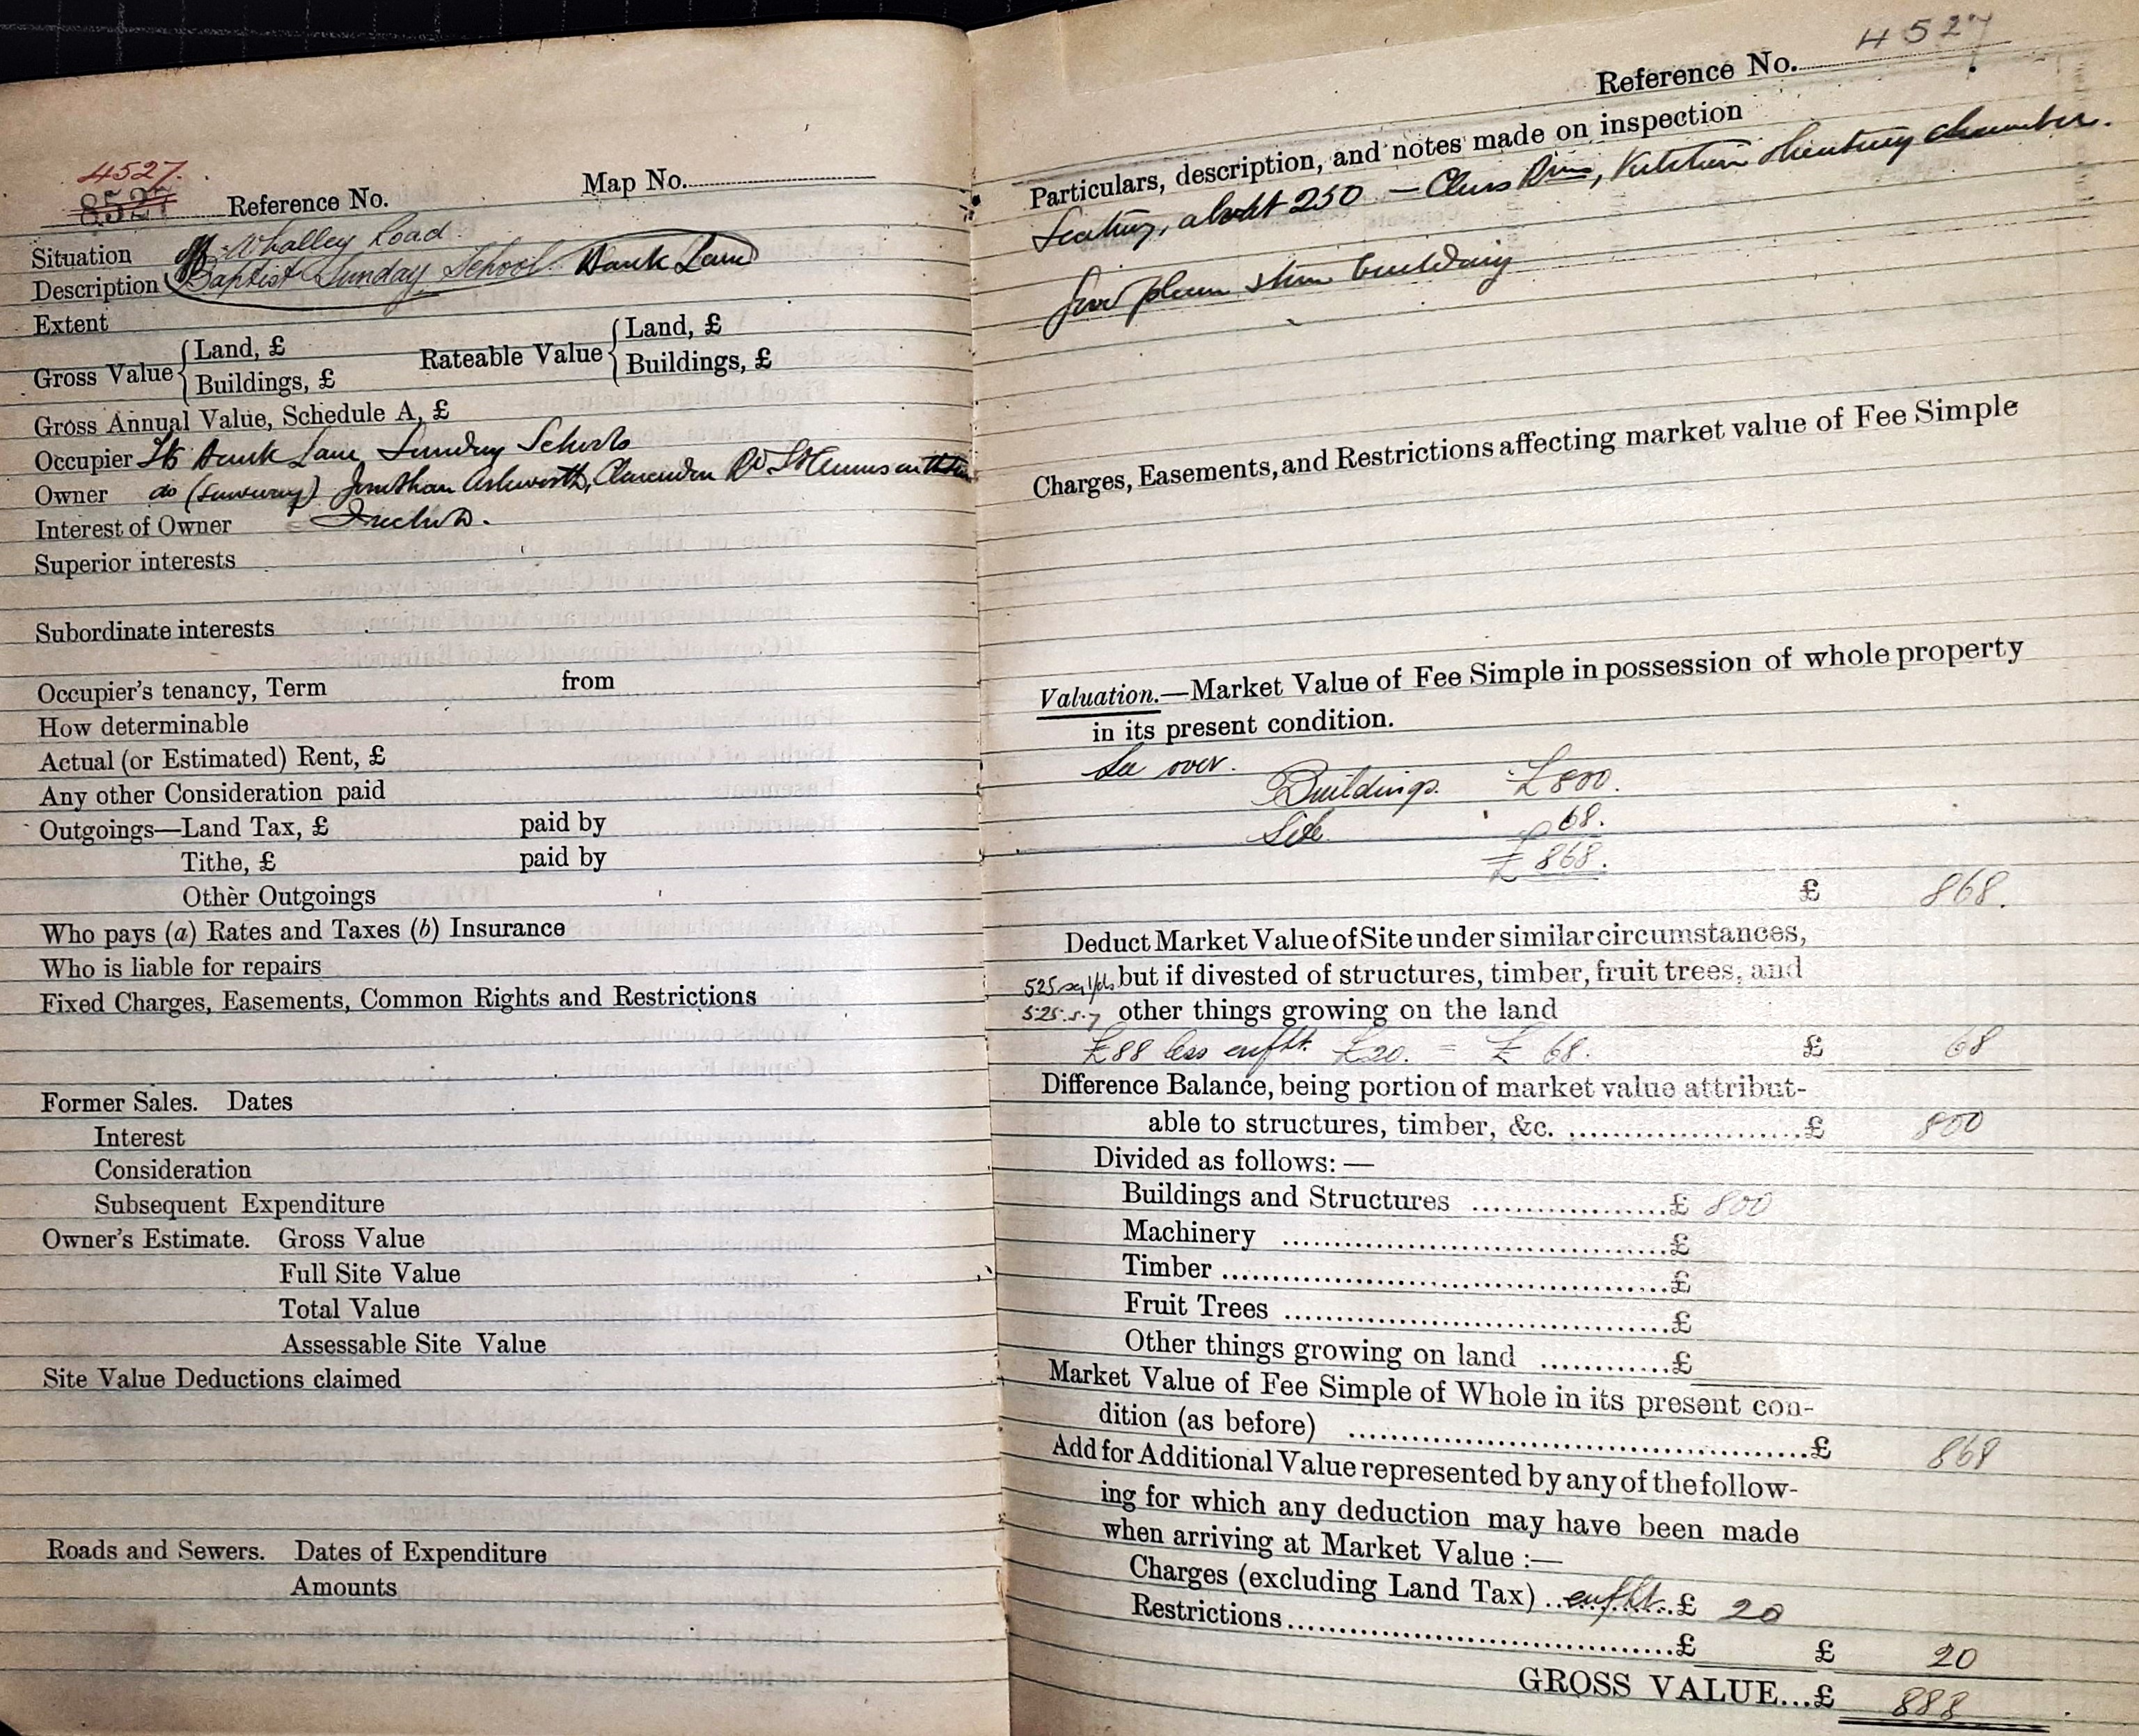 4527.
8527 Reference No. Map No.
Situation Whalley Road
Description Baptist Sunday School Bank Lane
Extent
Gross Value { Land, £
Buildings, £
Rateable Value { Land, £
Buildings, £
Gross Annual Value, Schedule A, £
Occupier Bank Lane Sunday Schools
Owner do Jonathan Ashworth, Clarendon Rd St Annes on the Sea
Interest of Owner Freehold.
Superior interests
Subordinate interests
Occupier's tenancy, Term from
How determinable
Actual (or Estimated) Rent, £
Any other Consideration paid
Outgoings—Land Tax, £ paid by
Tithe, £ paid by
Other Outgoings
Who pays (a) Rates and Taxes (b) Insurance
Who is liable for repairs
Fixed Charges, Easements, Common Rights and Restrictions
Former Sales. Dates
Interest
Consideration
Subsequent Expenditure
Owner's Estimate. Gross Value
Full Site Value
Total Value
Assessable Site Value
Site Value Deductions claimed
Roads and Sewers. Dates of Expenditure
Amounts
Reference No. 4527
Particulars, description, and notes made on inspection
Seating, about 250 — Class Rooms, Kitchen Heating chamber.
Good plain stone building
Charges, Easements, and Restrictions affecting market value of Fee Simple
Valuation.—Market Value of Fee Simple in possession of whole property
in its present condition.
See over.
Buildings. £800.
Site. 68.
£868.
£ 868.
Deduct Market Value of Site under similar circumstances,
525 sq yds but if divested of structures, timber, fruit trees, and
525 s.y other things growing on the land
£88 less enfht. £20. = £68. £ 68
Difference Balance, being portion of market value attribut-
able to structures, timber, &c. £ 800
Divided as follows: —
Buildings and Structures £ 800
Machinery £
Timber £
Fruit Trees £
Other things growing on land £
Market Value of Fee Simple of Whole in its present con-
dition (as before) £ 868
Add for Additional Value represented by any of the follow-
ing for which any deduction may have been made
when arriving at Market Value :—
Charges (excluding Land Tax) enfht. £ 20
Restrictions £ £ 20
GROSS VALUE...£ 888